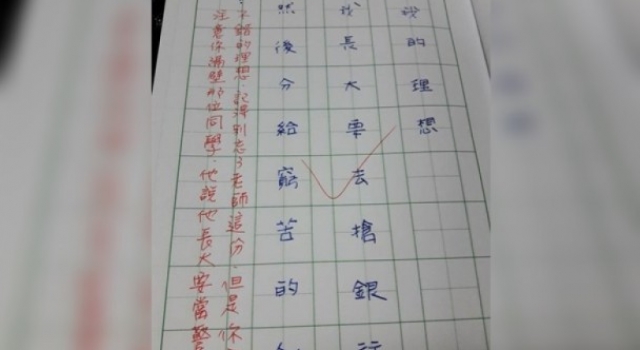 我的理想
我長大要去搶銀行
然後分給窮苦的
不錯的理想.記得別忘了老師這份.但是你
注意你隔壁那位同學.他說他長大要當警